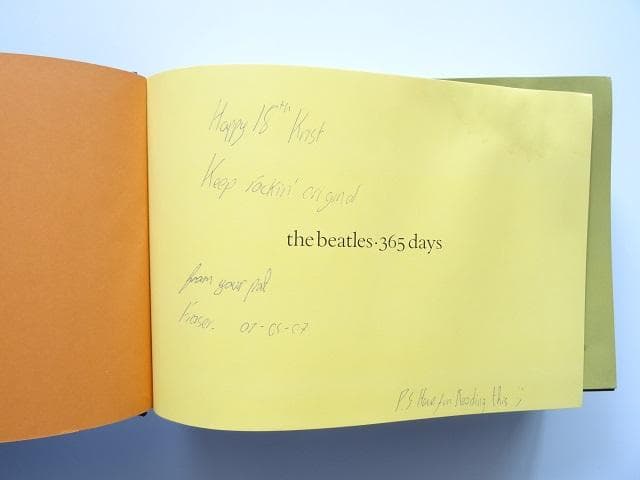 Happy 18th Krist
Keep rockin' original
the beatles·365 days
from your pal
Fraser.
P.S Have fun Reading this ;